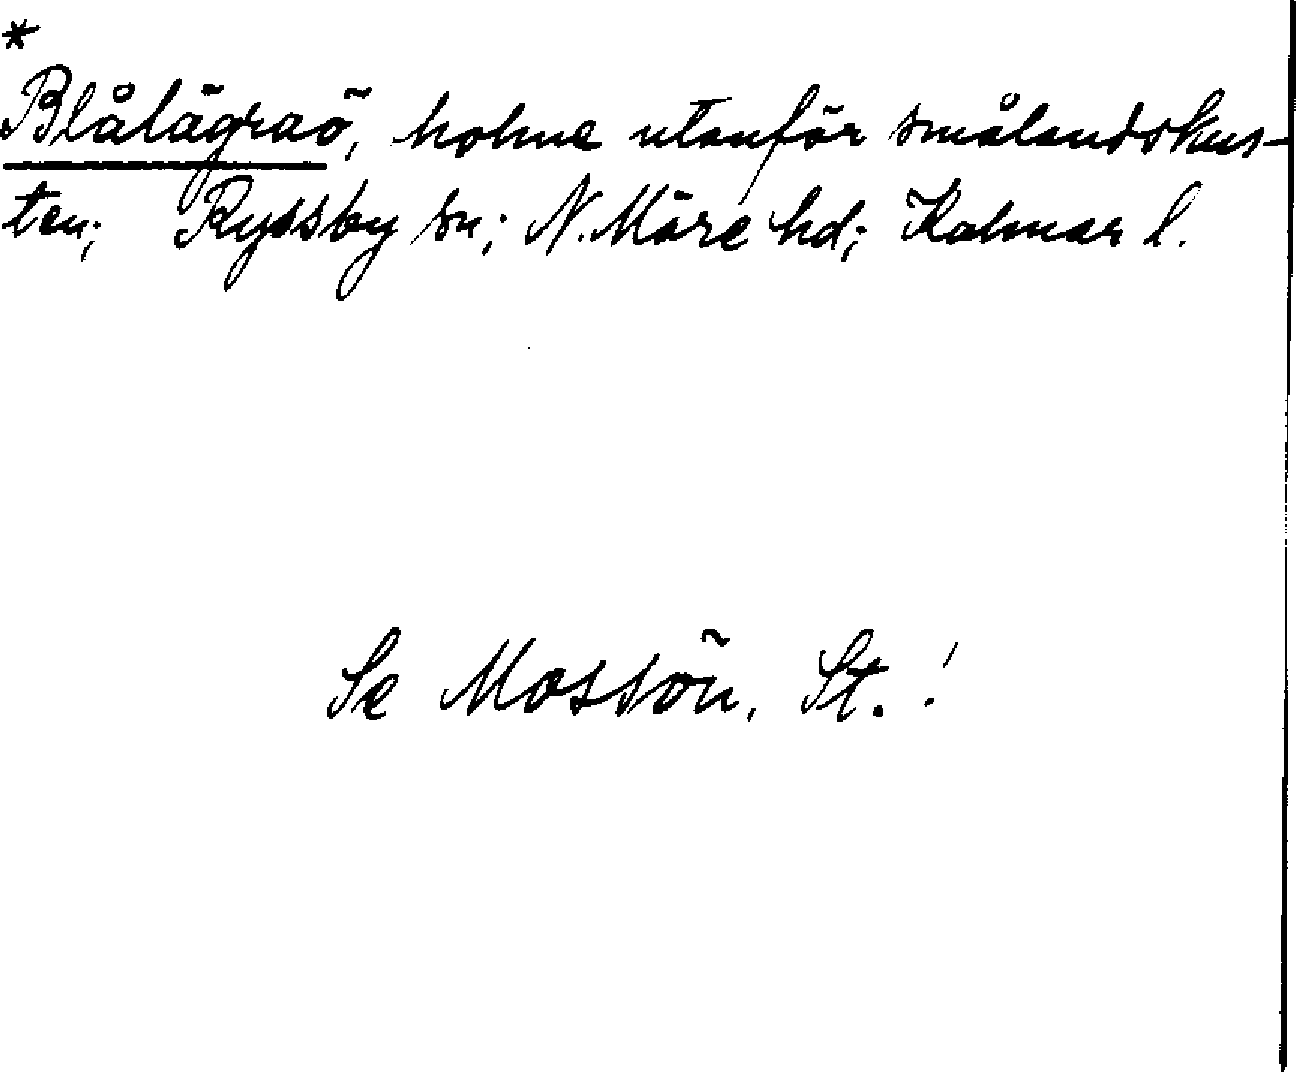 *
Blålägraö, holme utanför smålandskus-
ten; Ryssby sn; N. Möre hd; Kalmar l.
Se Mossön, St.!